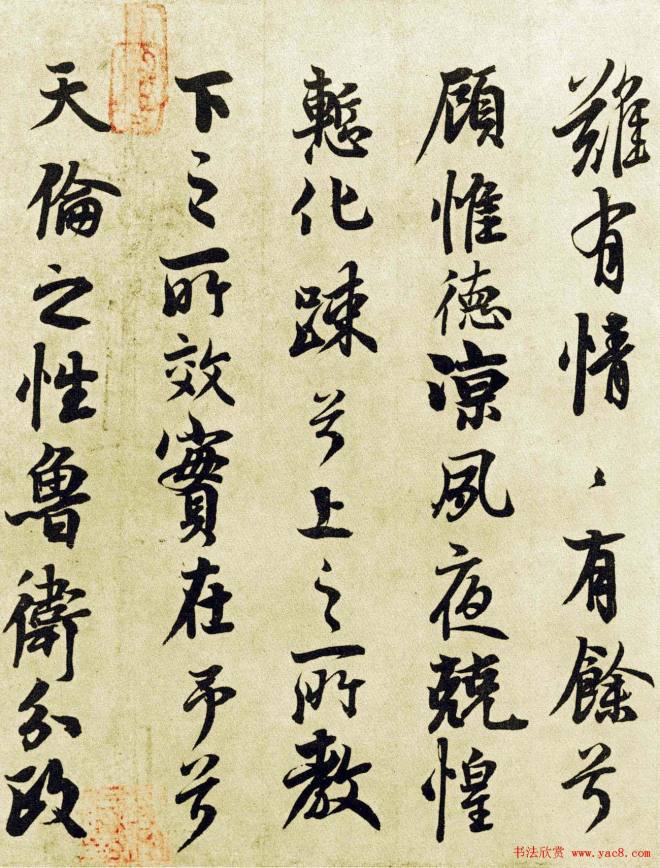 難有情〻有餘兮
顧惟德涼夙夜兢惶
慙化踈兮上之所教
下之所效實在予兮
天倫之性魯衛分政
书法欣赏 www.yac8.com